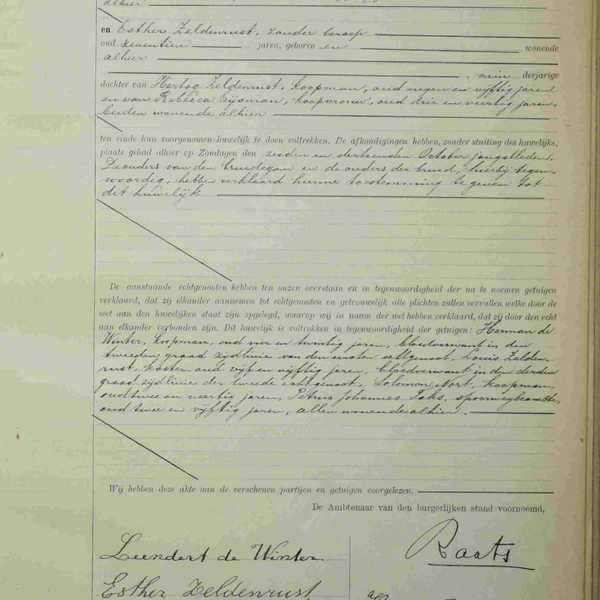 alhier
en Esther Zeldenrust, zonder beroep
oud zeventien jaren, geboren en wonende
alhier
, minderjarige
dochter van Hartog Zeldenrust, koopman, oud negen en vijftig jaren
en van Rebecca Eijsman, koopvrouw, oud drie en veertig jaren,
beiden wonende alhier
ten einde hun voorgenomen huwelijk te doen voltrekken. De afkondigingen hebben, zonder stuiting des huwelijks,
plaats gehad alhier op Zondagen den zesden en dertienden October jongstleden.
De ouders van den bruidegom en de ouders der bruid, hierbij tegen-
woordig, hebben verklaard hunne toestemming te geven tot
dit huwelijk
De aanstaande echtgenooten hebben ten onzen overstaan en in tegenwoordigheid der na te noemen getuigen
verklaard, dat zij elkander aannemen tot echtgenooten en getrouwelijk alle plichten zullen vervullen welke door de
wet aan den huwelijken staat zijn opgelegd, waarop wij in naam der wet hebben verklaard, dat zij door den echt
aan elkander verbonden zijn. Dit huwelijk is voltrokken in tegenwoordigheid der getuigen: Herman de
Winter, koopman, oud vier en twintig jaren, bloedverwant in den
tweeden graad zijdlinie van den eersten echtgenoot, Louis Zelden-
rust, koster oud vijf en vijftig jaren, bloedverwant in den derden
graad zijdlinie der tweede echtgenoot, Salomon Nort, koopman,
oud twee en veertig jaren, Petrus Johannes Taks, spoorwegbeambte,
oud twee en vijftig jaren, allen wonende alhier.
Wij hebben deze akte aan de verschenen partijen en getuigen voorgelezen.
De Ambtenaar van den burgerlijken stand voornoemd,
Leendert de Winter
Raats
Esther Zeldenrust